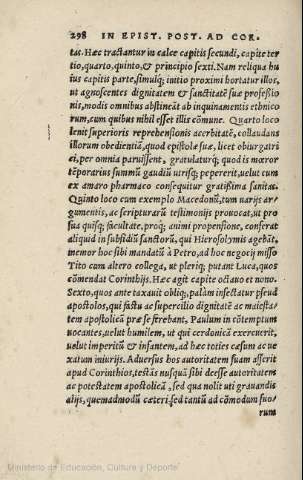 298 IN EPIST. POST. AD COR-
tas. Hæc tractantur in calce capitis secundi, capite ter
tio, quarto, quinto, & principio sexti. Nam reliqua hu
ius capitis parte, simulq; initio proximi hortatur illos,
ut agnoscentes dignitatem & sanctitatē suæ professio
nis, modis omnibus abstineāt ab inquinamentis ethnico
rum, cum quibus nihil esset illis cōmune. Quarto loco
lenit superioris reprehensionis acerbitatē, collaudans
illorum obedientiā, quod epistolæ suæ, licet obiurgatri
ci, per omnia paruissent, gratulaturq; quod is mœror
tēporarius summū gaudiū utrisq; pepererit, uelut cum
ex amaro pharmaco consequitur gratissima sanitas.
Quinto loco cum exemplo Macedonū, tum uarijs ar-
gumentis, ac scripturarū testimonijs prouocat, ut pro
sua quisq; facultate, proq; animi propensione, conferat
aliquid in subsidiū sanctorū, qui Hierosolymis agebāt,
memor hoc sibi mandatū à Petro, ad hoc negocij misso
Tito cum altero collega, ut pleriq; putant Luca, quos
cōmendat Corinthijs. Hæc agit capite octauo et nono.
Sexto, quos ante taxauit obliq;, palàm insectatur pseud
apostolos, qui fastu ac supercilio dignitatē ac maiesta-
tem apostolicā præ se ferebant, Paulum in cōtemptum
uocantes, uelut humilem, ut qui cerdonicā exercuerit,
uelut imperitū & infantem, ad hæc toties cæsum ac ue
xatum iniurijs. Aduersus hos autoritatem suam asserit
apud Corinthios, testās nusquā sibi deesse autoritatem
ac potestatem apostolicā, sed qua nolit uti grauandis
alijs, quemadmodū cæteri, sed tantū ad cōmodum suo/
rum
Ministerio de Educación, Cultura y Deporte